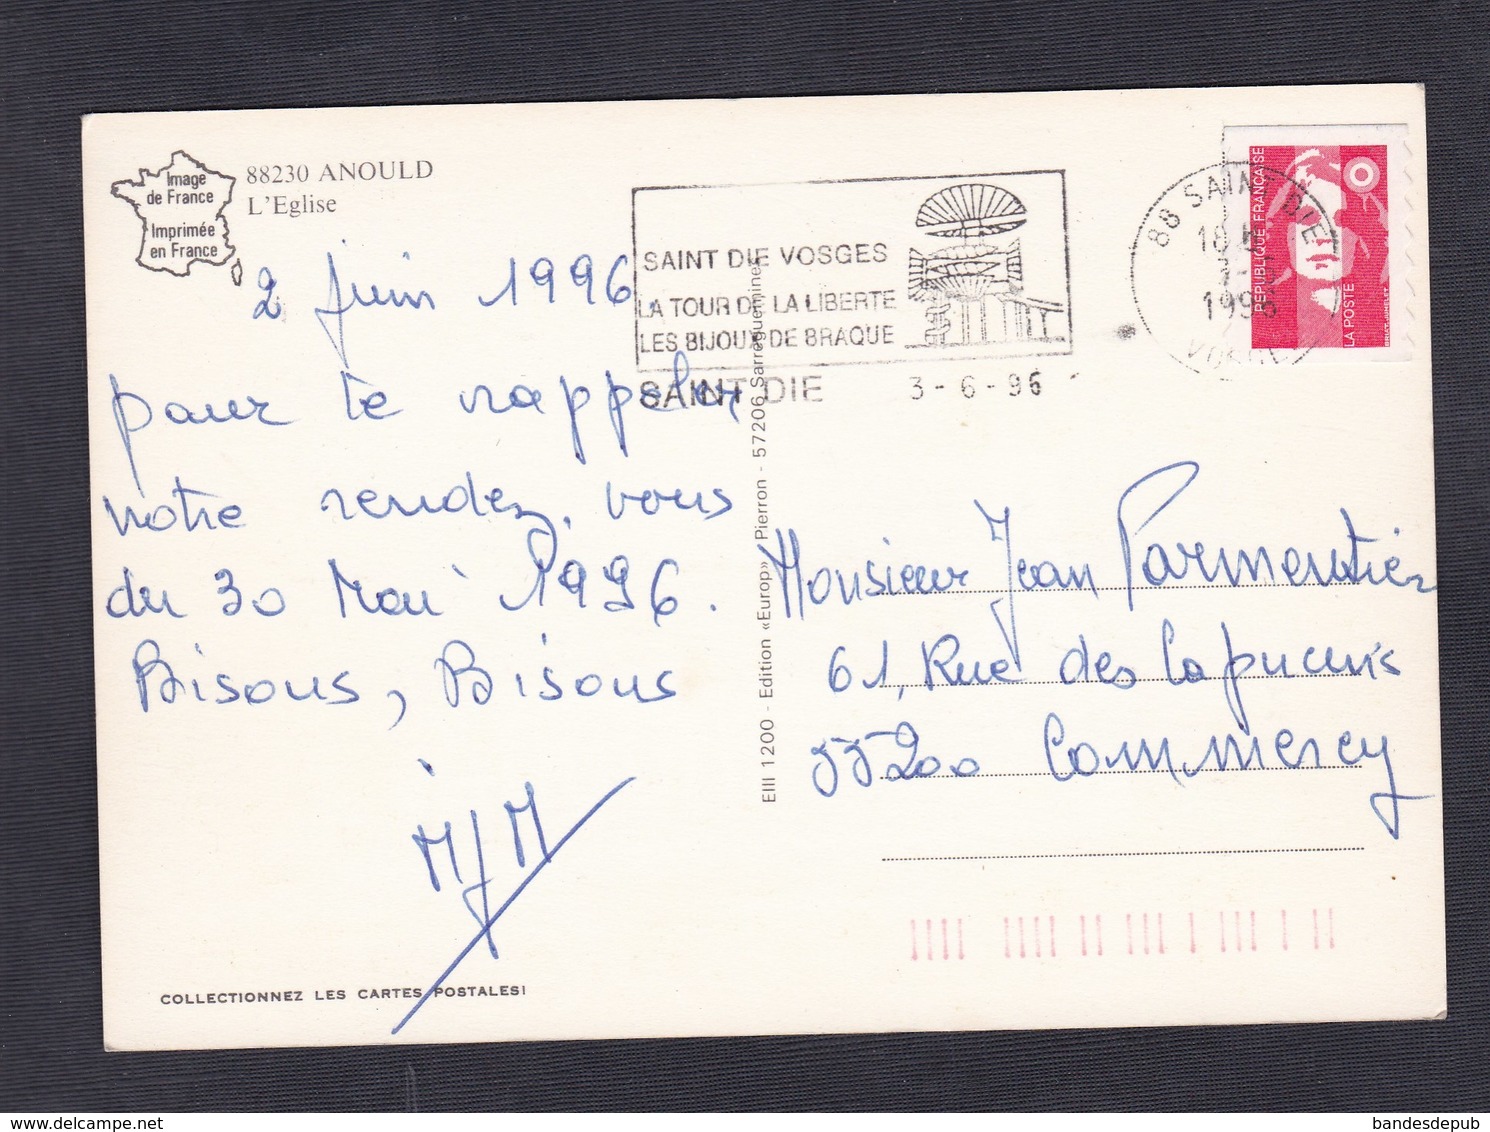 Image
de France
Imprimée
en France
88230 ANOULD
L'Eglise
2 juin 1996
pour te rappeler
notre rendez-vous
du 30 Mai 1996.
Bisous, Bisous
MJM
COLLECTIONNEZ LES CARTES POSTALES!
EIII 1200 - Edition «Europ» Pierron - 57206 Sarreguemines
SAINT DIE VOSGES
LA TOUR DE LA LIBERTE
LES BIJOUX DE BRAQUE
SAINT DIE 3-6-96
88 SAINT DIE
18 H
1996
VOSGES
REPUBLIQUE FRANÇAISE
LA POSTE
Monsieur Jean Parmentier
61, Rue des Capucins
55200 Commercy
www.delcampe.net
bandesdepub